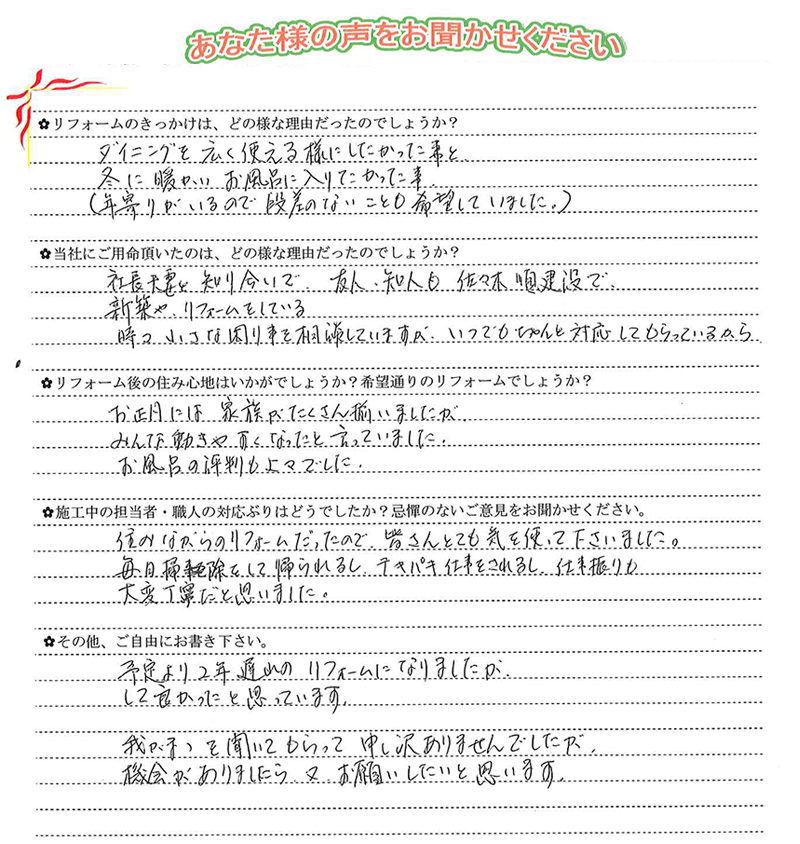 あなた様の声をお聞かせください
✿リフォームのきっかけは、どの様な理由だったのでしょうか？
ダイニングを広く使える様にしたかった事と、
冬に暖かいお風呂に入りたかった事、
(年寄りがいるので段差のないことも希望していました。)
✿当社にご用命頂いたのは、どの様な理由だったのでしょうか？
社長夫妻と知り合いで、友人、知人も佐々木順建設で、
新築や、リフォームをしている
時々小さな困り事を相談していますが、いつでもちゃんと対応してもらっているから
✿リフォーム後の住み心地はいかがでしょうか？希望通りのリフォームでしょうか？
お正月には家族がたくさん揃いましたが、
みんな動きやすくなったと言っていました。
お風呂の評判も上々でした。
✿施工中の担当者・職人の対応ぶりはどうでしたか？忌憚のないご意見をお聞かせください。
住みながらのリフォームだったので、皆さんとても気を使って下さいました。
毎日掃除をして帰られるし、テキパキ仕事をされるし、仕事振りも
大変丁寧だと思いました。
✿その他、ご自由にお書き下さい。
予定より2年遅れのリフォームになりましたが、
して良かったと思っています。
我がままを聞いてもらって申し訳ありませんでしたが、
機会がありましたら、又お願いしたいと思います。